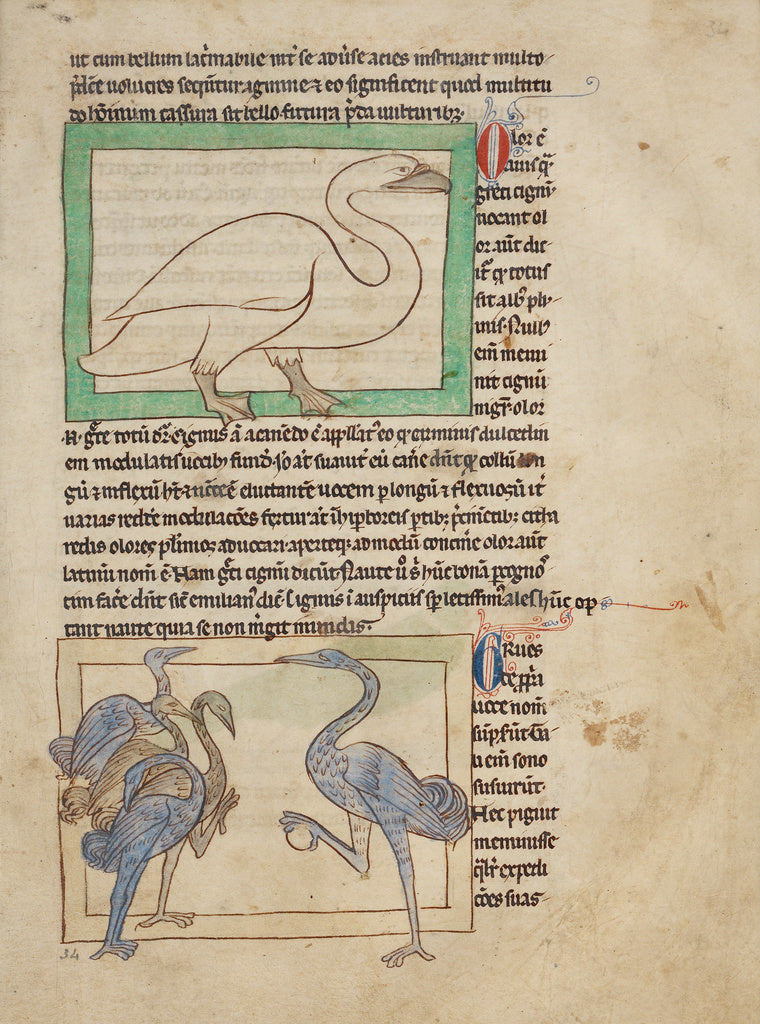 ut cum bellum lac̄mabile int̄ se adũse acies instruant multo-
plīce uolucres secūtur agmine ⁊ eo significent quod multitu
do hōinum cassura sit bello futura p̄da uulturibꝫ.
Olor ē
auis q̄
greci cigni᷑
uocant ol
or aūt dic
it᷑ qꝫ totus
sit albꝰ plu-
mis. Nullꝰ
em̄ memi
nit cignū
nigr̄. olor
totū dr̄. Cignus ā a canēdo ē appellatꝰ eo qꝫ carminis dulcedin
em modulatis uocibꝫ fund᷑. Jō āt suauit᷑ eū cañe dn̄t qꝫ collū
gū ⁊ inflexū ht̄ ⁊ eluctantē uocem p longū ⁊ flexuosū it᷑
uarias reddẽ modulac̄oēs fert᷑ āt ī hiꝑboreis ꝑtibꝫ p̄cinētibꝫ citha
redis olores pl̄imos aduocari. aperteqꝫ admodū concinẽ olor aūt
latinū nom̄ ē. Nam gr̄ci cigni dicūt. Naute ů s̄ hūc bonā p̄cogno-
tm̄ facẽ dn̄t sic̄ emilianꝰ dic̄. Cignus ī auspiciis sp̄ letissimꝰ ales hūc op
tant naute quia se non m̄git in undis.
GRues
ꝓpria
uoce nom̄
sūpser̄t. Ta
li em̄ sono
susurūt.
Hec pigiut
meminisse
q̄lr̄ expedi
c̄oēs suas-
34
34